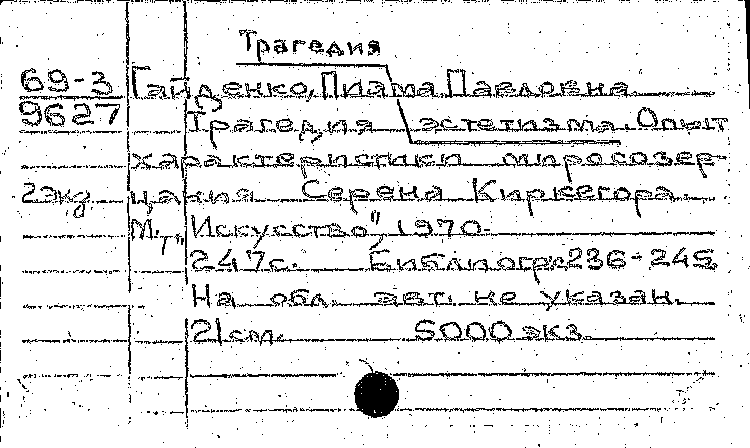 Трагедия
69-3 Гайденко, Пиама Павловна
9627 Трагедия эстетизма. Опыт
характеристики миросозер-
2экз. цания Серена Киркегора.
М., "Искусство", 1970.
247с. Библиогр.: 236-245
На обл. авт. не указан.
21см. 5000 экз.